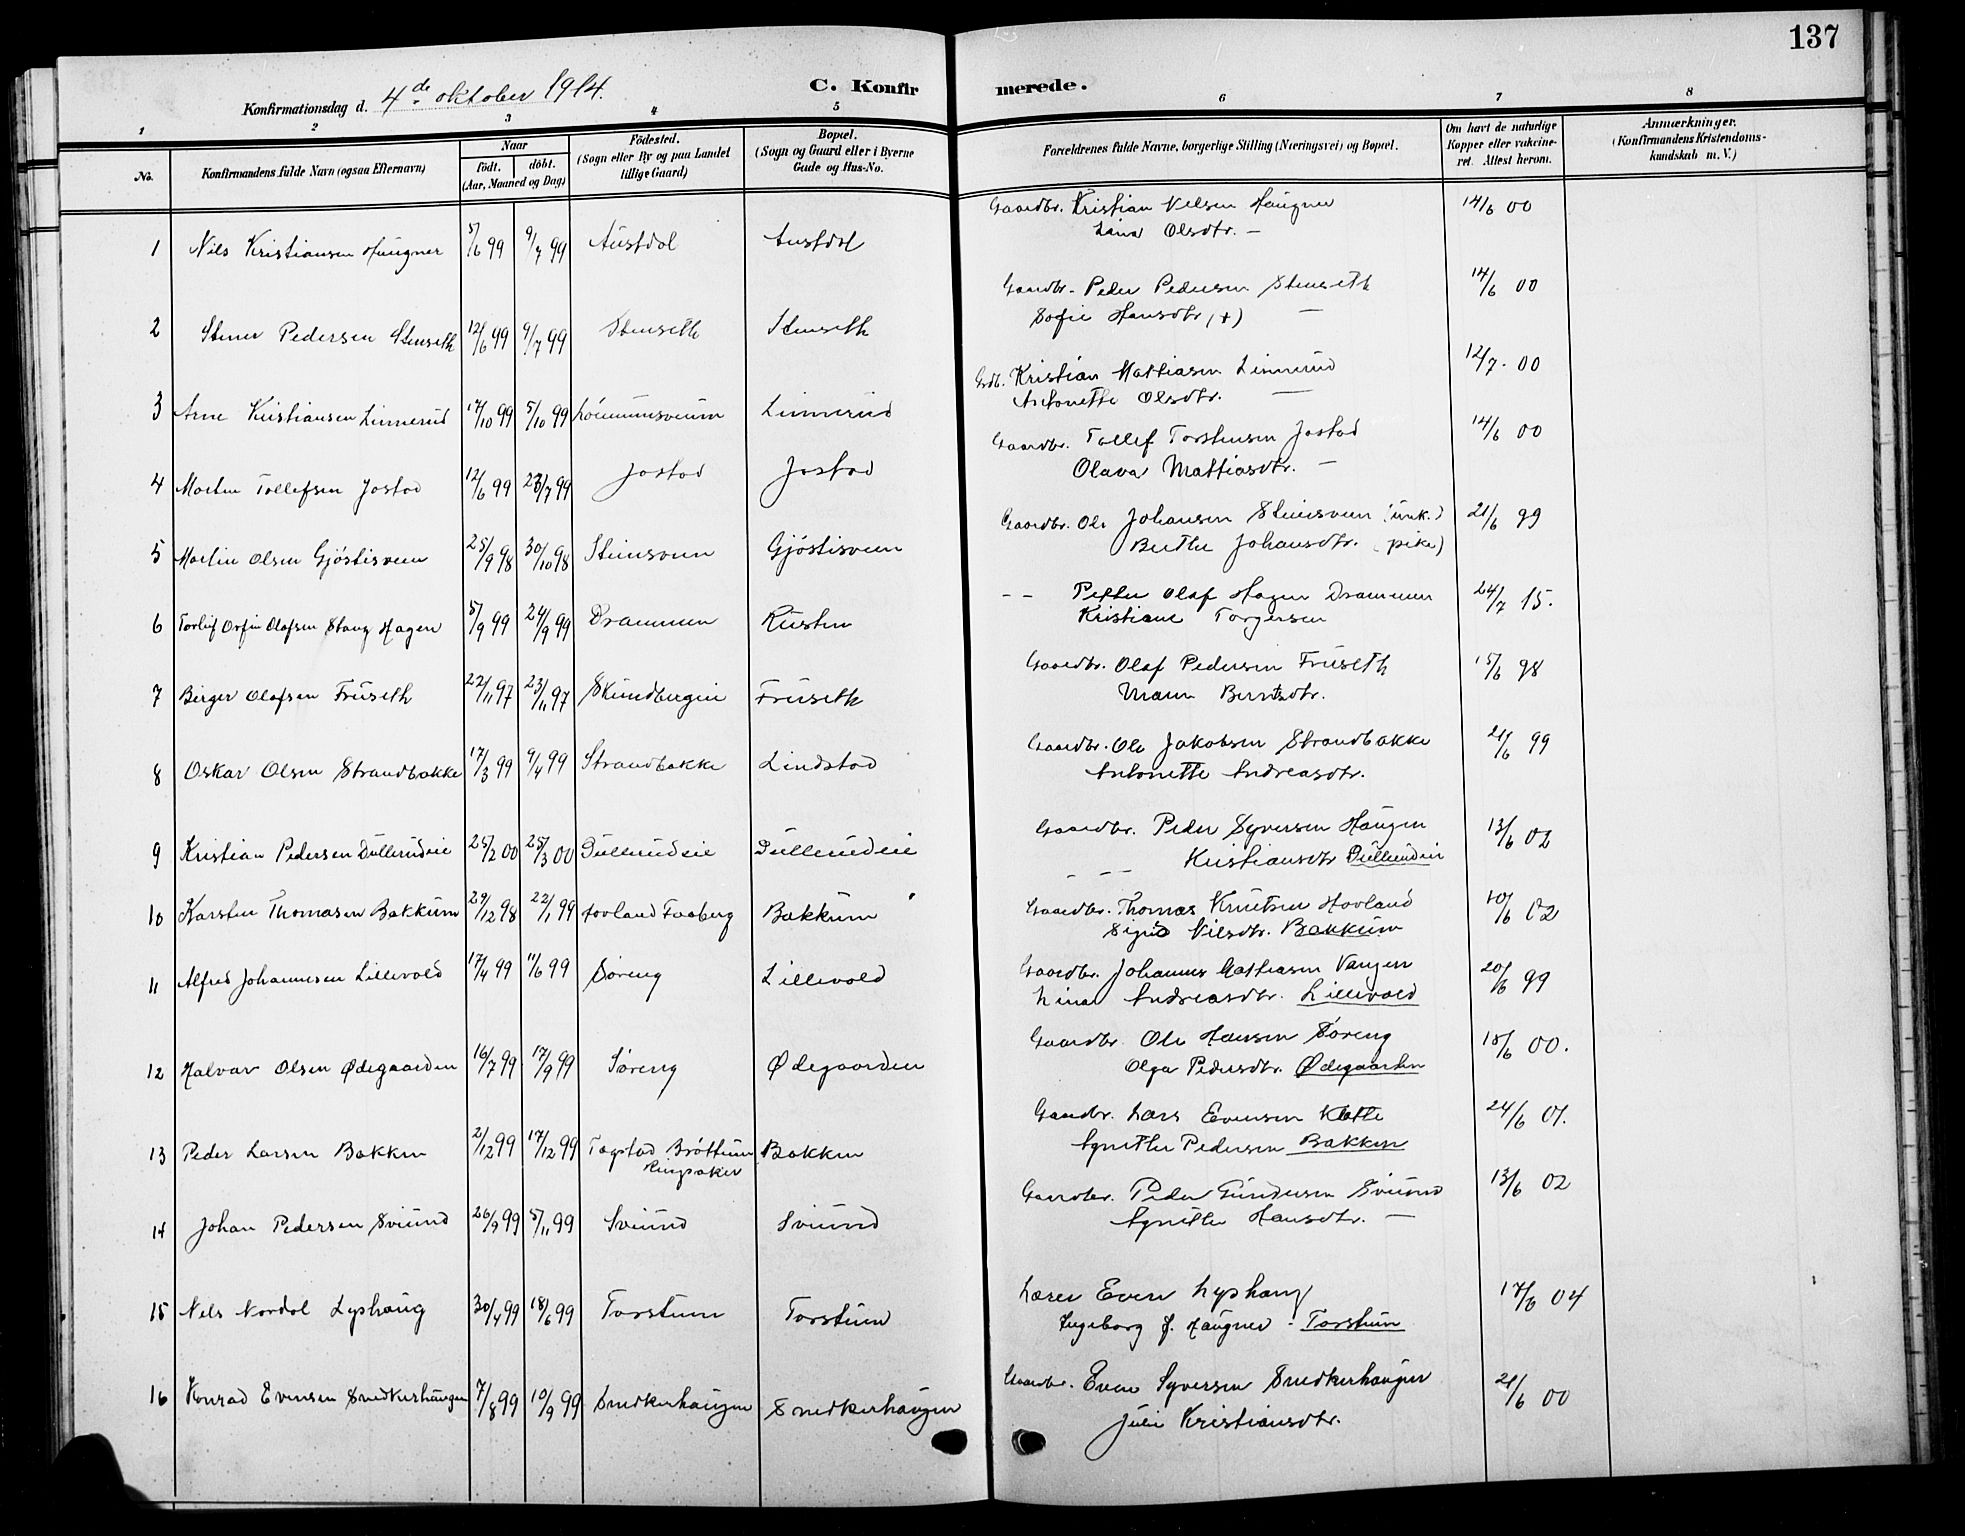 137
Konfirmationsdag d. 4de oktober 1914.
C. Konfirmerede.
1 2 3 4 5 6 7 8
No.
Konfirmandens fulde Navn (ogsaa Efternavn)
Naar
födt. döbt.
(Aar, Maaned og Dag)
Födested.
(Sogn eller By og paa Landet
tillige Gaard)
Bopæl.
(Sogn og Gaard eller i Byerne
Gade og Hus-No.
Forældrenes fulde Navne, borgerlige Stilling (Næringsvei) og Bopæl.
Om havt de naturlige
Kopper eller vakcine-
ret. Attest herom.
Anmærkninger.
(Konfirmandens Kristendoms-
kundskab m. V.)
1 Nils Kristiansen Haugner 5/6 99 9/7 99 Austdal Austdal Gaardbr. Kristian Nilsen Haugner 14/6 00
Lina Olsdtr. —
2 Stener Pedersen Stenseth 12/6 99 9/7 99 Stenseth Stenseth Gaardbr. Peder Pedersen Stenseth 14/6 00
Sofie Hansdtr. (+) —
3 Arne Kristiansen Linnerud 17/10 99 5/10 99 Linnerud Grdb. Kristian Mathiasen Linnerud 12/7. 00
Antonette Olsdtr. —
4 Morten Tollefsen Jostad 12/6 99 23/7 99 Jostad Jostad Gaardbr. Tollef Torstensen Jostad 14/6 00
Olava Mathiasdtr. —
5 Martin Olsen Gjöstisveen 25/9 98 30/10 98 Stensveen Gjöstisveen Gaardbr. Ole Johansen Stensveen (unk.) 21/6 99
Berthe Johansdtr. (pike)
6 Torleif Orfin Olafsen Stang Hagen 5/9 99 24/9 99 Drammen Rusten - - Petter Olaf Hagen Drammen 24/7 15.
Kristiane Torgersen
7 Birger Olafsen Fruseth 22/11 97 23/11 97 Skundbergeie Fruseth Gaardbr. Olaf Pedersen Fruseth 15/6 98
Maren Berntsdtr.
8 Oskar Olsen Strandbakke 17/3 99 9/4 99 Strandbakke Lindstad Gaardbr. Ole Jakobsen Strandbakke 21/6 99
Antonette Andreasdtr.
9 Kristian Pedersen Dullerudeie 25/2 00 25/3 00 Dullerudeie Dullerudeie Gaardbr. Peder Syversen Haugen 13/6 02
- - - Kristiansdtr Dullerudeie
10 Karsten Thomasen Bakkum 29/12 98 22/1 99 Hovland Faaberg Bakkum Gaardbr. Thomas Knutsen Hovland 10/6 02
Sigrid Nilsdtr. Bakkum
11 Alfred Johannesen Lillevold 17/4 99 11/6 99 Søreng Lillevold Gaardbr. Johannes Mathiasen Vangen 20/6 99
Lina Andreasdtr. Lillevold
12 Halvar Olsen Ødegaarden 16/7 99 17/9 99 Søreng Ødegaarden Gaardbr. Ole Hansen Søreng 15/6 00.
Olga Pedersdtr. Ødegaarden
13 Peder Larsen Bakken 2/12 99 17/12 99 Tagstad Bröttum Bakken Gaardbr. Lars Evensen Klette 24/6 01.
Ringsaker Agnethe Pedersen Bakken
14 Johan Pedersen Sviund 26/9 99 5/11 99 Sviund Sviund Gaardbr. Peder Gundersen Sviund 13/6 02
Agnethe Hansdtr. —
15 Nils Nordal Lyshaug 30/4 99 18/6 99 Torstuen Torstuen Lærer Even Lyshaug 17/6 04
Ingeborg f. Haugner - Torstuen
16 Konrad Evensen Snedkerhaugen 7/8 99 10/9 99 Snedkerhaugen Snedkerhaugen Gaardbr. Even Syversen Snedkerhaugen 21/6 00
Julie Kristiansdtr.